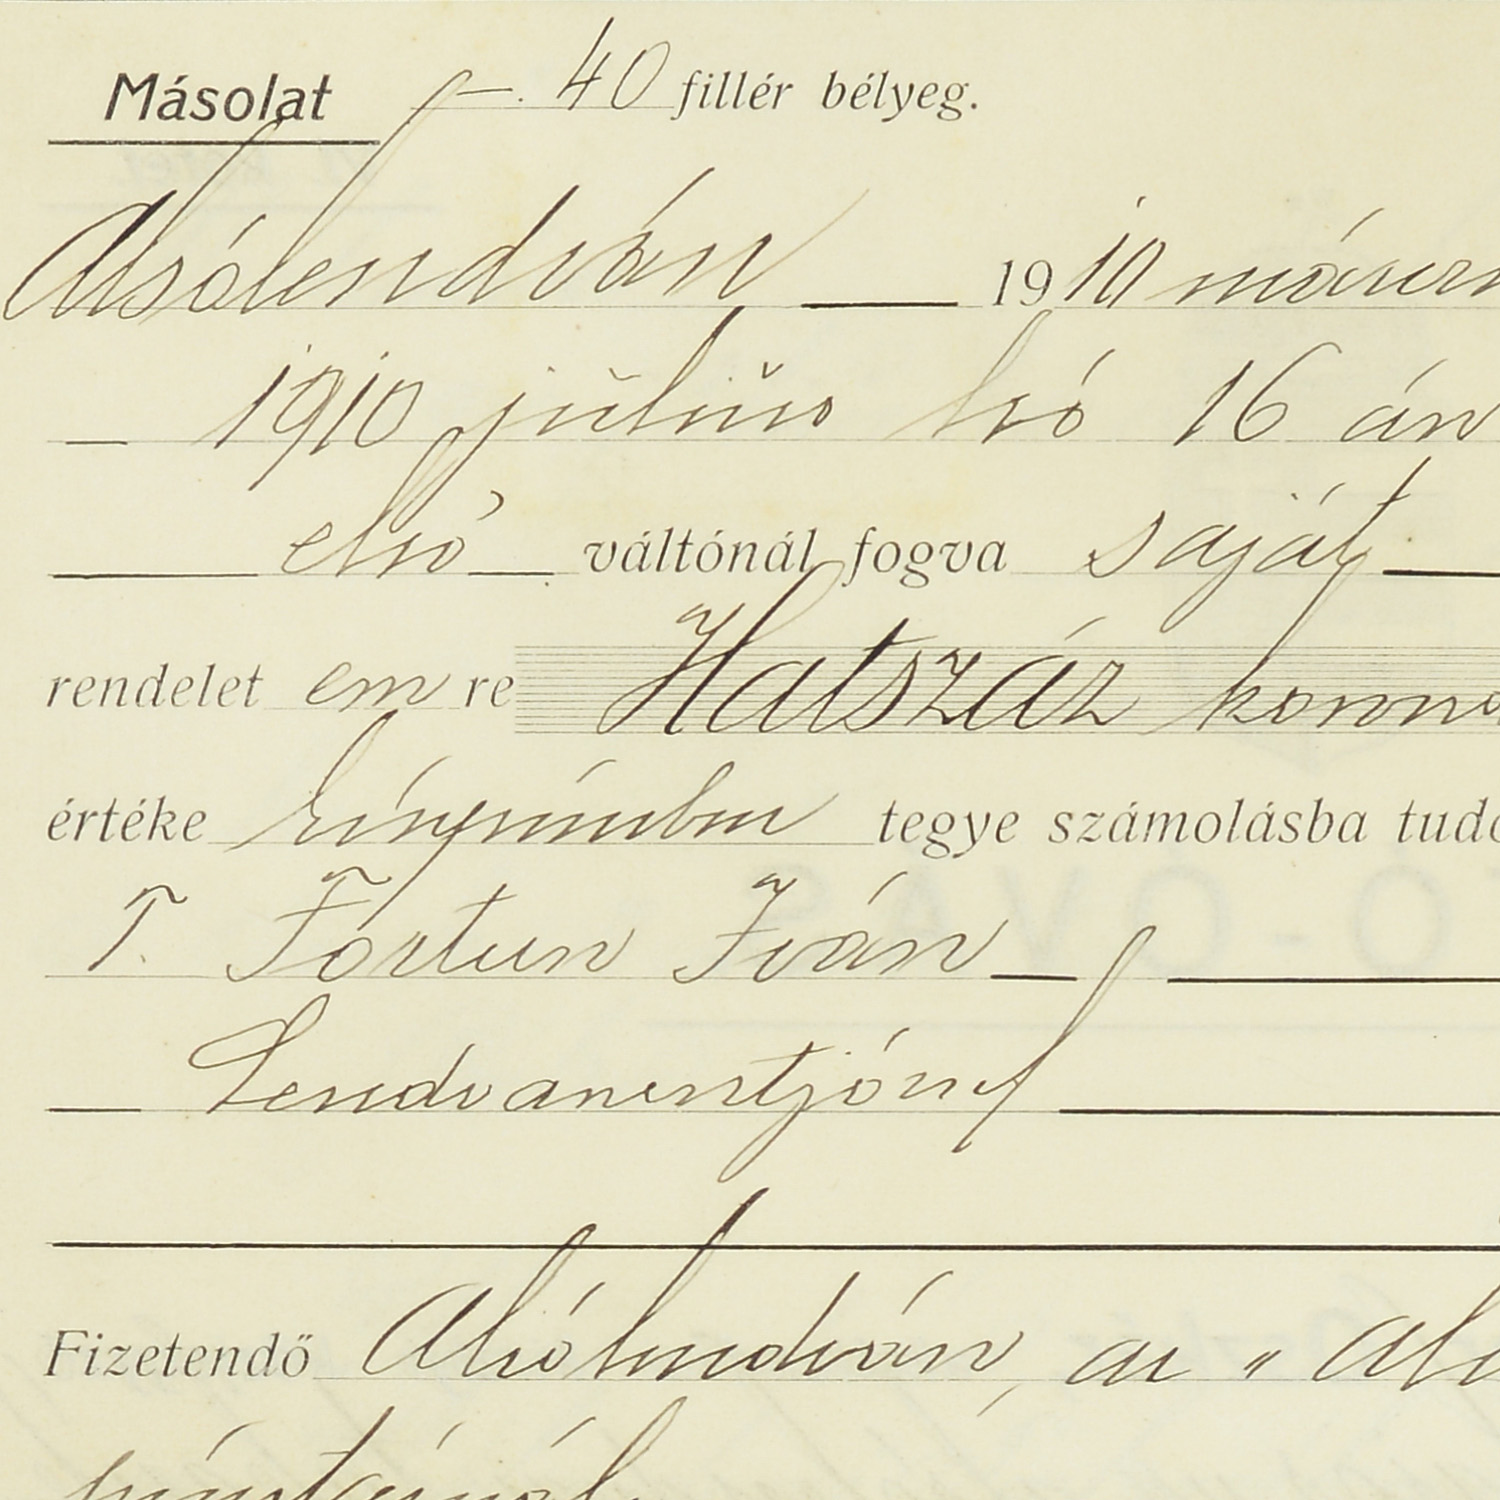 Másolat –. 40 fillér bélyeg.
Alsólendván 1910 márczi
1910 július hó 16 án
első váltónál fogva saját
rendelet em re Hatszáz koron
értéke készpénzben tegye számolásba tud
T. Fortun Iván
Lendvaszentjózsef
Fizetendő Alsólendván, az „Als
pénztáránál